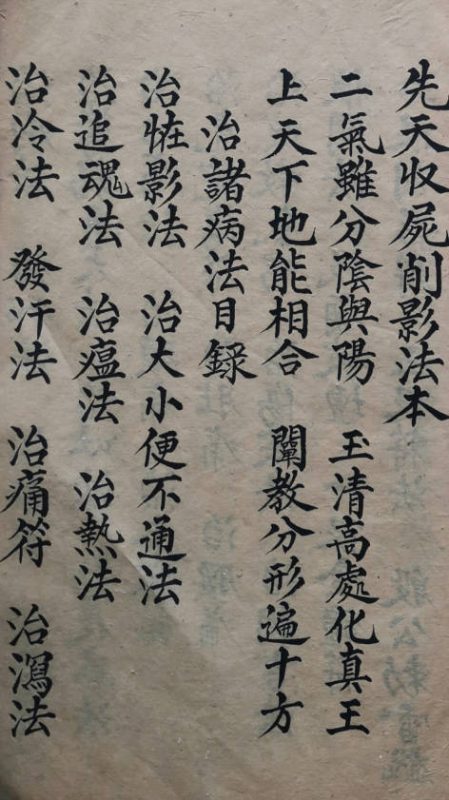 先天収屍削影法本
二氣雖分陰與陽 玉清高處化真王
上天下地能相合 闡教分形遍十方
治諸病法目録
治恠影法 治大小便不通法
治追魂法 治瘟法 治熱法
治冷法 發汗法 治痛符 治瀉法